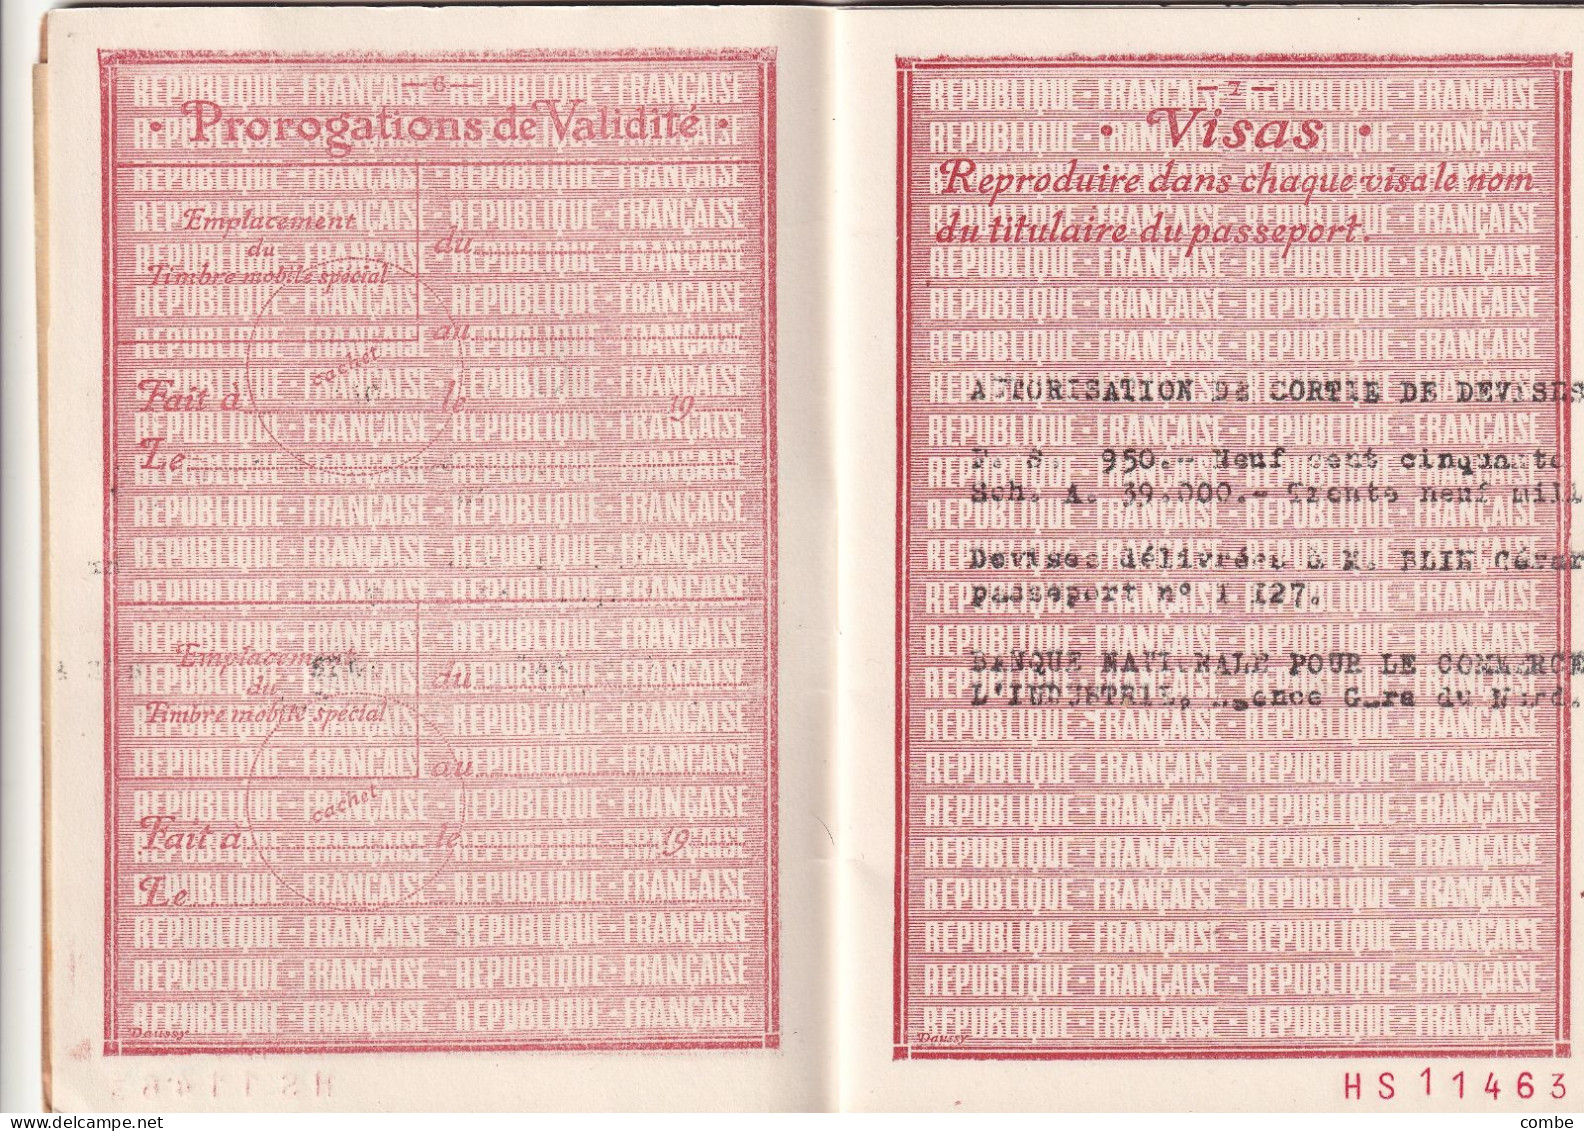 — 6 —
• Prorogations de Validité •
Emplacement
du
Timbre mobile spécial
du
au
cachet
Fait à le 19
Le
Emplacement
du
Timbre mobile spécial
du
au
cachet
Fait à le 19
Le
Daussy
HS11463
— 7 —
• Visas •
Reproduire dans chaque visa le nom
du titulaire du passeport.
REPUBLIQUE - FRANÇAISE - REPUBLIQUE - FRANÇAISE
AUTORISATION DE SORTIE DE DEVISES
F. S. 950.- Neuf cent cinquante
Sch. A. 39.000.- Trente neuf mill
Devises délivrées à M. BLIN Gérar
passeport n° 1 127.
BANQUE NATIONALE POUR LE COMMERCE
L'INDUSTRIE, Agence Gare du Nord.
Daussy
HS11463
delcampe.net
combe